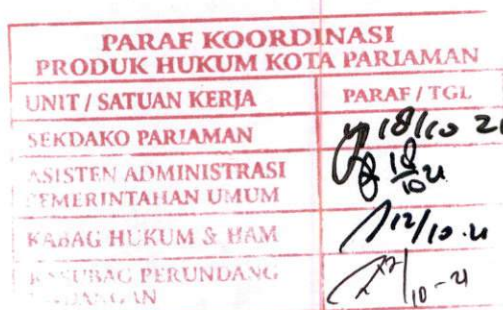 PARAF KOORDINASI
PRODUK HUKUM KOTA PARIAMAN
UNIT / SATUAN KERJA PARAF / TGL
SEKDAKO PARIAMAN 18/10 21
ASISTEN ADMINISTRASI
PEMERINTAHAN UMUM 18/10 21
KABAG HUKUM & HAM 12/10-21
KASUBAG PERUNDANG
UNDANGAN /10-21